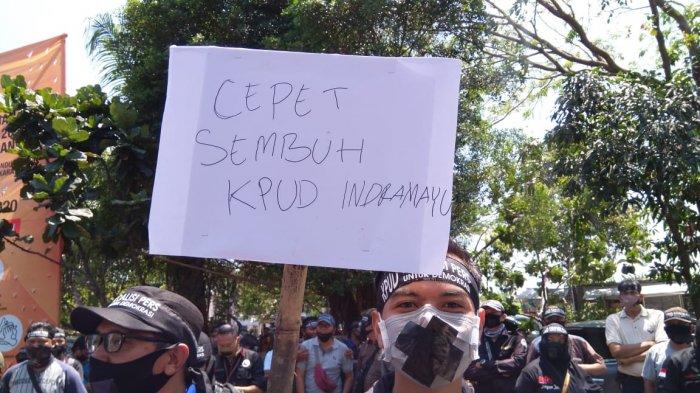 CEPET
SEMBUH
KPUD INDRAMAYU
KPUD
UNTUK DEMOKRASI
ALISI PERS
DEMOKRASI
20